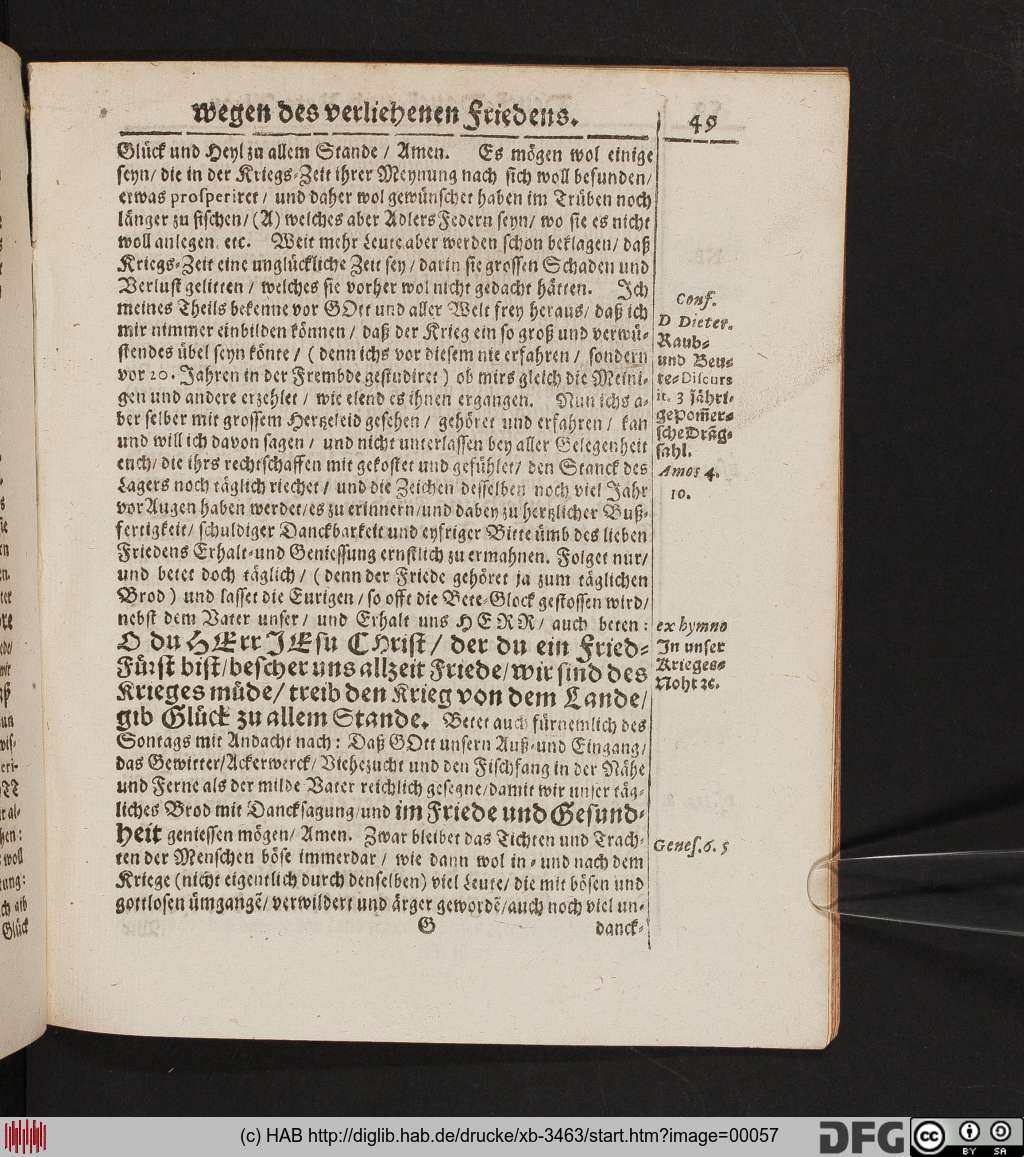 wegen des verliehenen Friedens.
49
Glück und Heyl zu allem Stande / Amen. Es mögen wol einige
seyn / die in der Kriegs-Zeit ihrer Meynung nach sich woll befunden /
etwas prosperiret / und daher wol gewünschet haben im Trüben noch
länger zu fischen / (A) welches aber Adlers Federn seyn / wo sie es nicht
woll anlegen. etc. Weit mehr Leute aber werden schon beklagen / daß
Kriegs-Zeit eine unglückliche Zeit sey / darin sie grossen Schaden und
Verlust gelitten / welches sie vorher wol nicht gedacht hätten. Ich
meines Theils bekenne vor GOtt und aller Welt frey heraus / daß ich
mir nimmer einbilden können / daß der Krieg ein so groß und verwü-
stendes übel seyn könte / ( denn ichs vor diesem nie erfahren / sondern
vor 20. Jahren in der Frembde gestudiret ) ob mirs gleich die Meini-
gen und andere erzehlet / wie elend es ihnen ergangen. Nun ichs a-
ber selber mit grossem Hertzeleid gesehen / gehöret und erfahren / kan
und will ich davon sagen / und nicht unterlassen bey aller Gelegenheit
euch / die ihrs rechtschaffen mit gekostet und gefühlet / den Stanck des
Lagers noch täglich riechet / und die Zeichen desselben noch viel Jahr
vor Augen haben werdet / es zu erinnern / und dabey zu hertzlicher Buß-
fertigkeit / schuldiger Danckbarkeit und eyfriger Bitte ümb des lieben
Friedens Erhalt- und Geniessung ernstlich zu ermahnen. Folget nur /
und betet doch täglich / ( denn der Friede gehöret ja zum täglichen
Brod ) und lasset die Eurigen / so offt die Bete-Glock gestossen wird /
nebst dem Vater unser / und Erhalt uns HERR / auch beten :
O du HErr JEsu CHrist / der du ein Fried-
Fürst bist / bescher uns allzeit Friede / wir sind des
Krieges müde / treib den Krieg von dem Lande /
gib Glück zu allem Stande. Betet auch fürnemlich des
Sontags mit Andacht nach : Daß GOtt unsern Auß- und Eingang /
das Gewitter / Ackerwerck / Viehezucht und den Fischfang in der Nähe
und Ferne als der milde Vater reichlich gesegne / damit wir unser täg-
liches Brod mit Dancksagung / und im Friede und Gesund-
heit geniessen mögen / Amen. Zwar bleibet das Tichten und Trach-
ten der Menschen böse immerdar / wie dann wol in- und nach dem
Kriege (nicht eigentlich durch denselben) viel Leute / die mit bösen und
gottlosen ümgangẽ / verwildert und ärger gewordẽ / auch noch viel un-
G
danck-
Conf.
D Dieter.
Raub-
und Beu-
te-Discurs
it. 3 jähri-
ge Pom̃er-
sche Drãg-
sahl.
Amos 4.
10.
ex hymno
In unser
Krieges-
Noht ꝛc.
Genes. 6. 5
(c) HAB http://diglib.hab.de/drucke/xb-3463/start.htm?image=00057
DFG
cc
BY SA